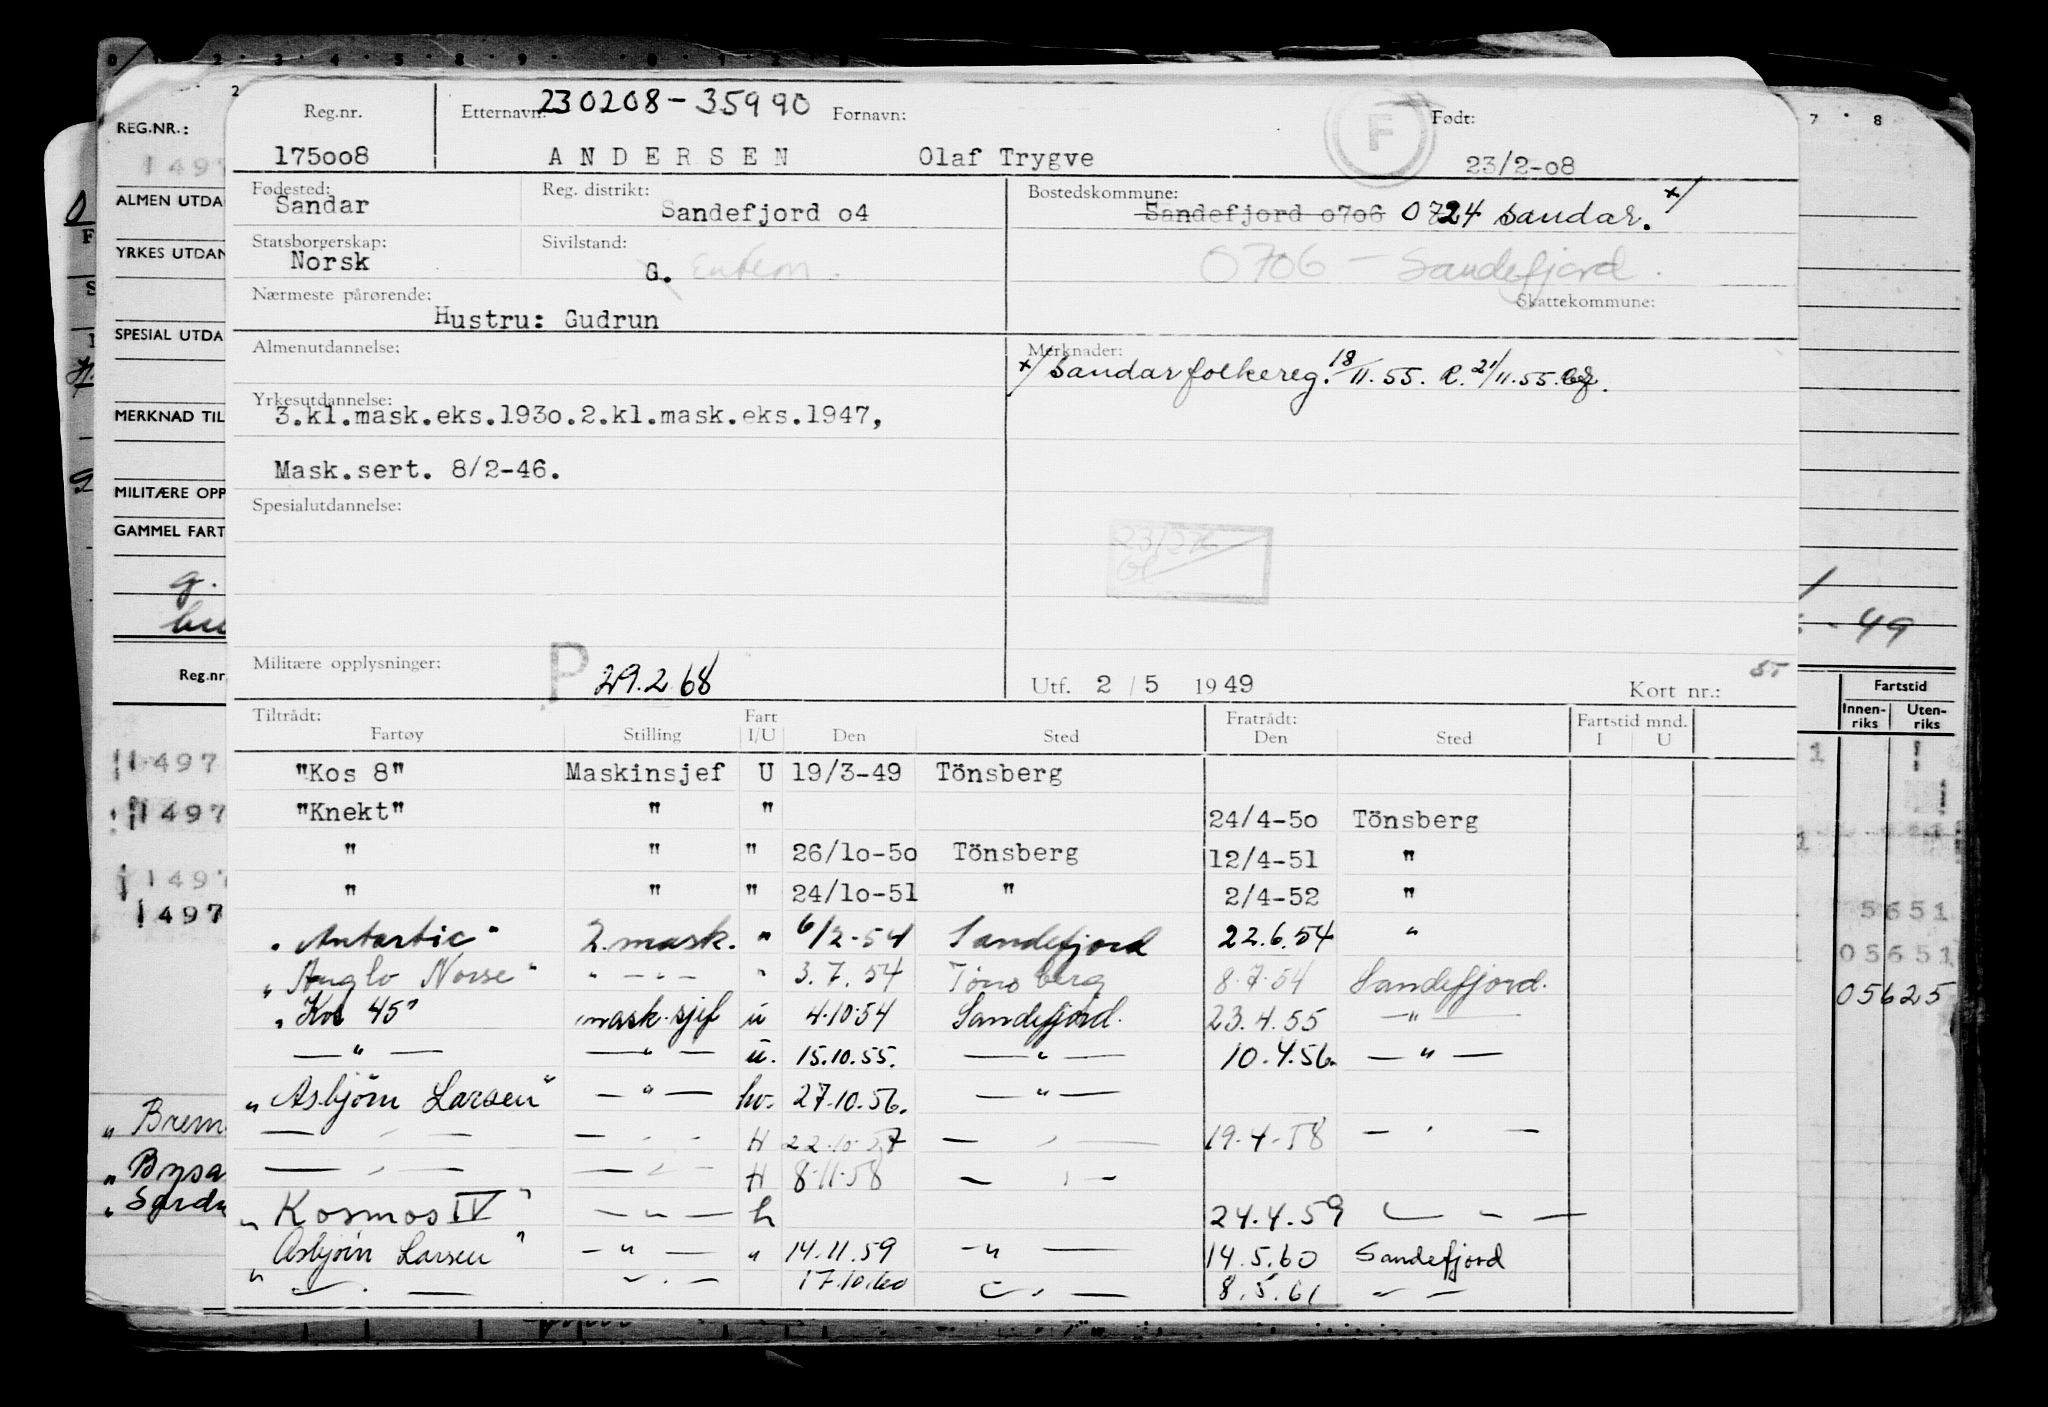 REG.NR.:
ALMEN UTDA
YRKES UTDAN
SPESIAL UTDA
MERKNAD TIL
MILITÆRE OPP
GAMMEL FART
Reg.nr
1497
1497
1497
1497
„ Brem
„ Bysa
Reg.nr. Etternavn: 230208-35990 Fornavn: F Født:
175008 ANDERSEN Olaf Trygve 23/2-08
Fødested: Reg. distrikt: Bostedskommune:
Sandar Sandefjord 04 Sandefjord 0706 0724 Sandar. x/
Statsborgerskap: Sivilstand:
Norsk G. 0706 - Sandefjord.
Nærmeste pårørende: Skattekommune:
Hustru: Gudrun
Almenutdannelse: Merknader:
x/ Sandar folkereg. 18/11.55. R. 21/11.55.
Yrkesutdannelse:
3.kl.mask.eks.1930.2.kl.mask.eks.1947,
Mask.sert. 8/2-46.
Spesialutdannelse:
Militære opplysninger: P 29.2.68 Utf. 2 / 5 1949 Kort nr.:
Tiltrådt: Fart Fratrådt: Fartstid mnd.
Fartøy Stilling I/U Den Sted Den Sted I U
"Kos 8" Maskinsjef U 19/3-49 Tönsberg
"Knekt" " " 24/4-50 Tönsberg
" " " 26/10-50 Tönsberg 12/4-51 "
" " " 24/10-51 " 2/4-52 "
„Antartic" 2. mask. " 6/2-54 Sandefjord 22.6.54 "
„Anglo Norse" " — " — " 3.7.54 Tönsberg 8.7.54 Sandefjord.
„Kos 45" mask.sjef u 4.10.54 Sandefjord. 23.4.55 — " —
— " — — " — u. 15.10.55. — " — 10.4.56. — " —
„Asbjörn Larsen" — " — hv. 27.10.56. — " —
— " — — " — H 22.10.57 — " — 19.4-58 — " —
— " — — " — H 8.11.58 — " —
„Kosmos IV" — " — h 24.4.59 — " —
„Asbjörn Larsen" — " — " 14.11.59 — " — 14.5.60 Sandefjord
— " — — " — 17.10.60 — " — 8.5.61 — " —
7 8
- 49
Fartstid
Innen- Uten-
riks riks
1
5651
05651
05625